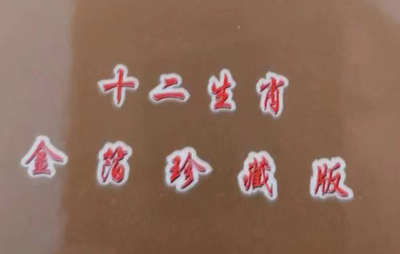 十二生肖
金箔珍藏版